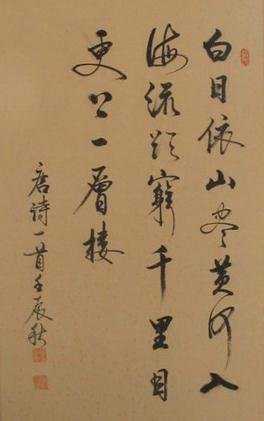 白日依山尽黄河入
海流欲穷千里目
更上一层楼
唐诗一首壬辰秋